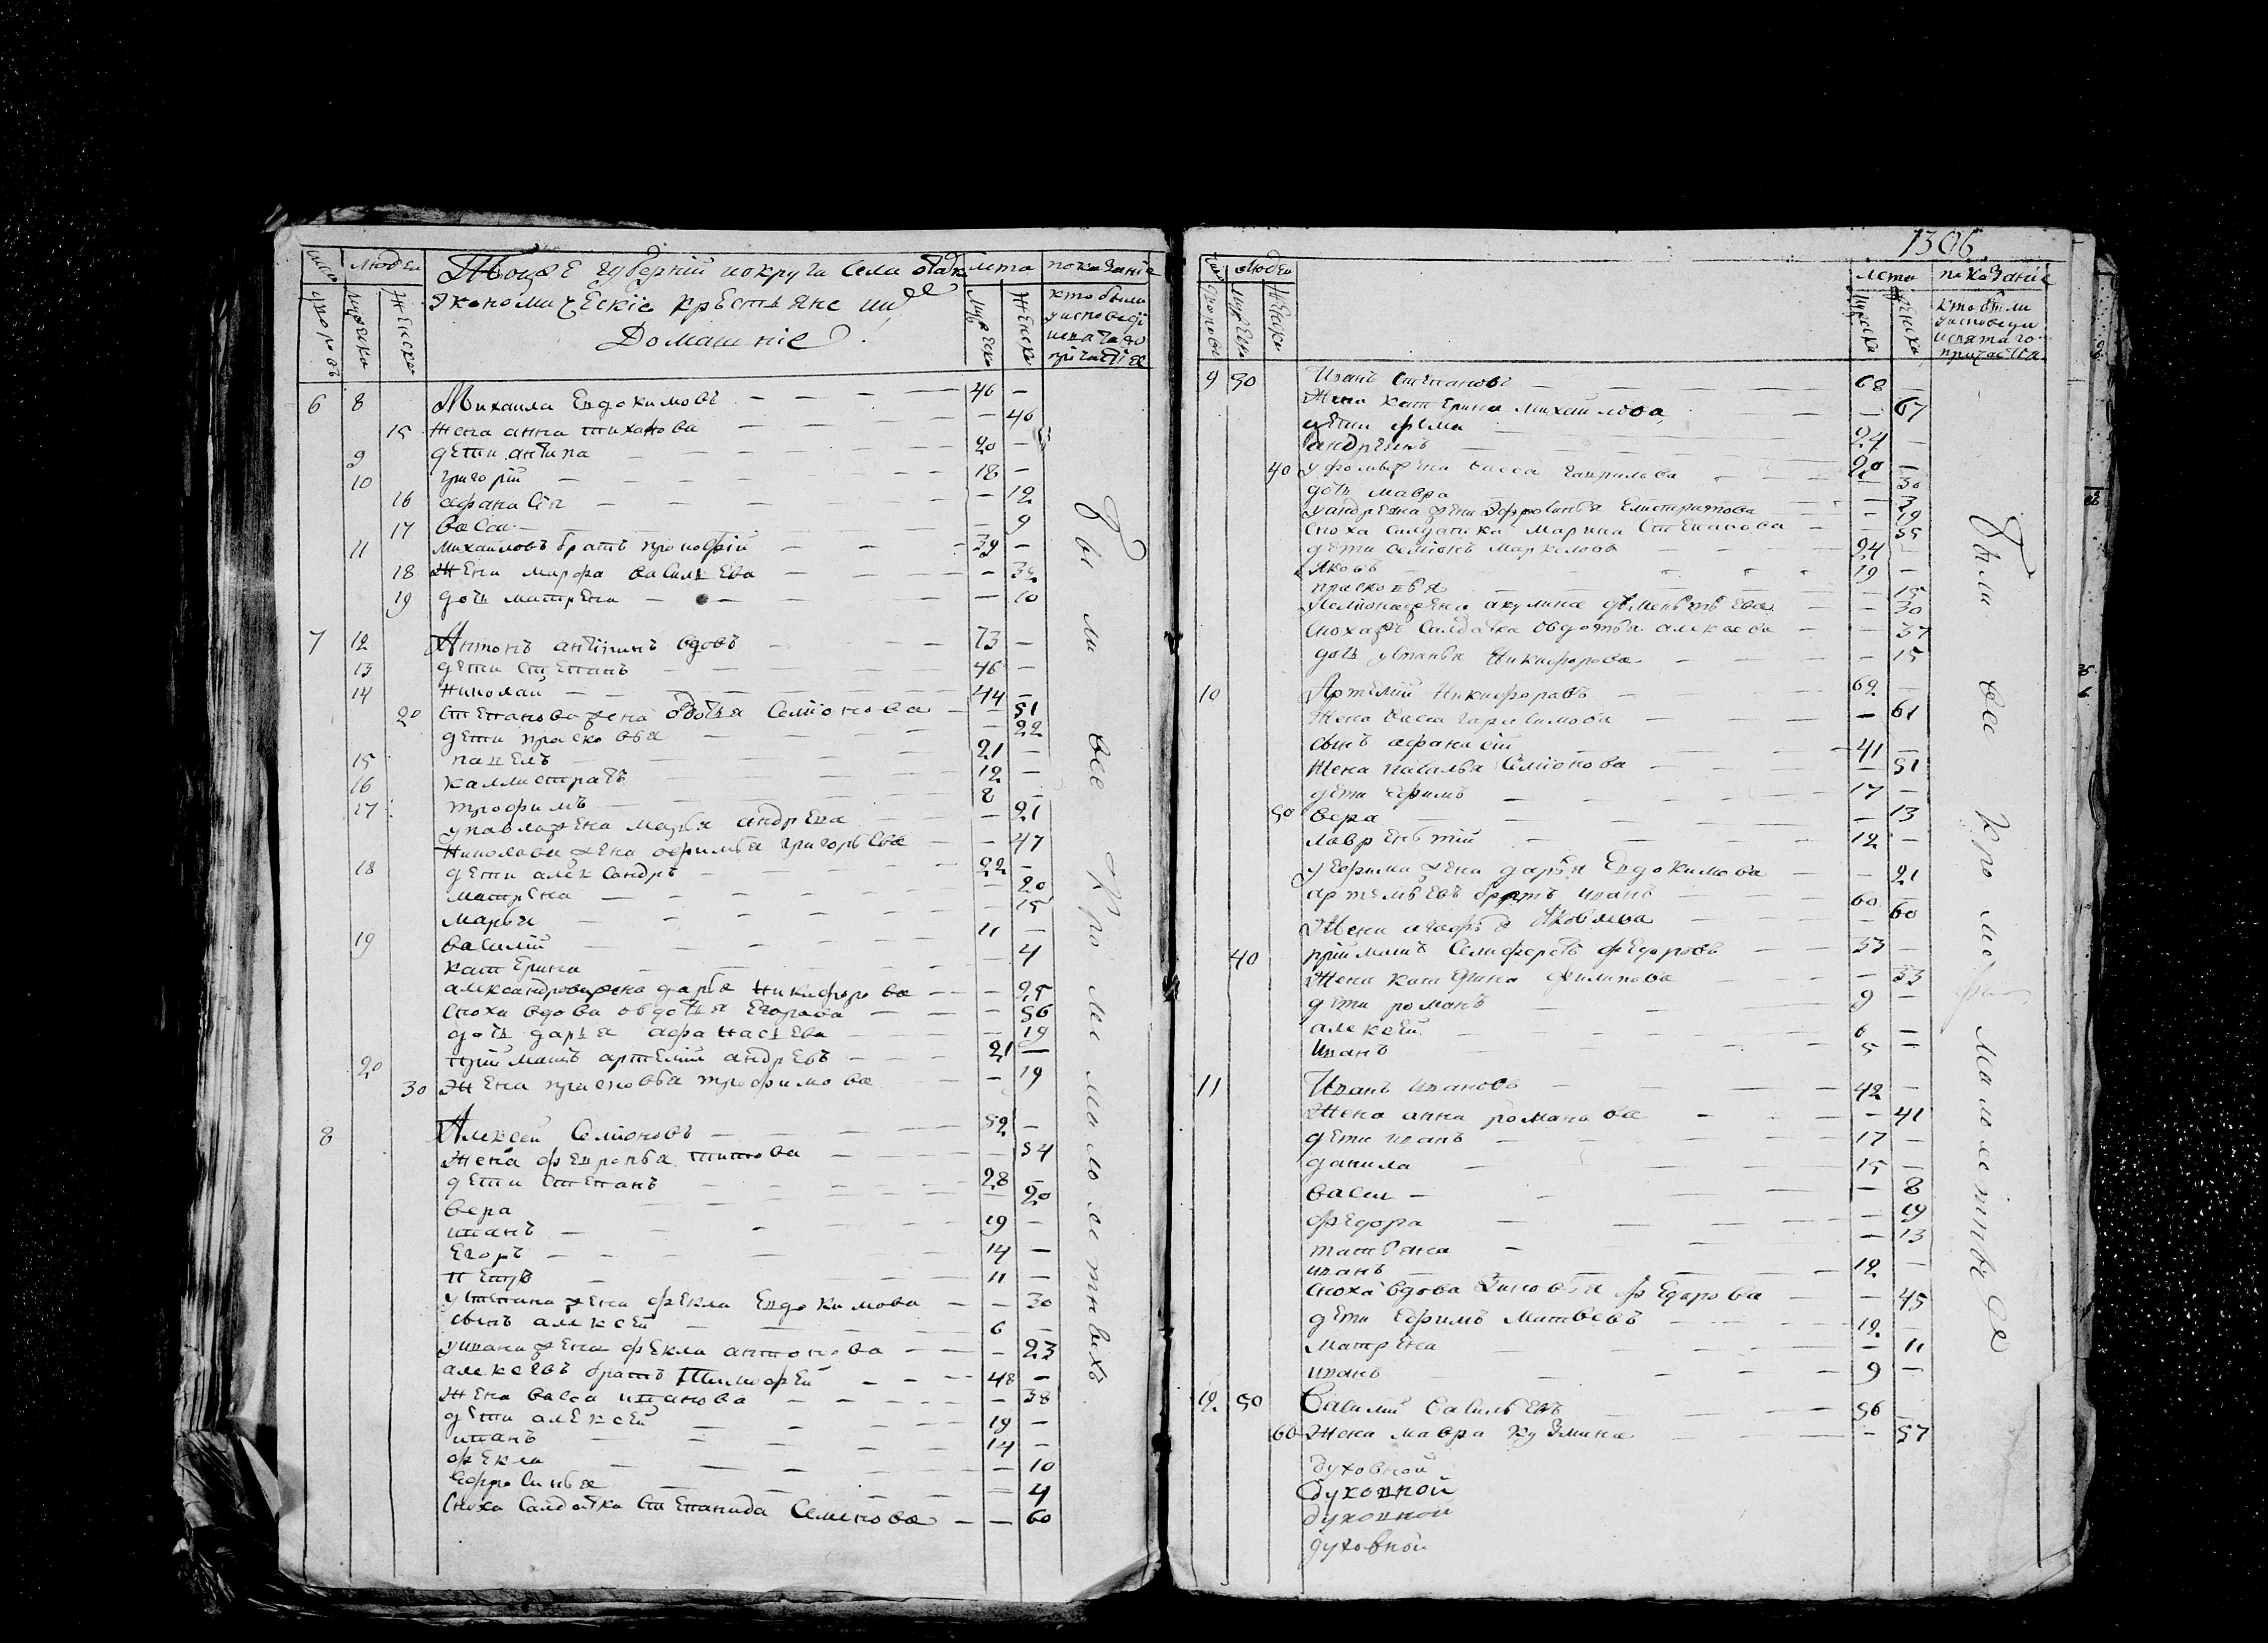 число
дворовъ
людей
мужеска
женска
Тоцже губерніи и округи села
экономическіе крестьяне и ихъ
Домашніе
лета
мужеска
женска
показаніе
кто были
у исповеди
и святаго
причастія
6 8 Михаила Евдокимовъ — 46 —
15 жена анна тиханова — 46
9 дети антипа — 20 —
10 григорій — 18 —
16 афанасія — 12
17 васса — 9
11 михайловъ братъ прокофій — 39 —
18 жена марфа васильева — 34
19 дочь матрена — 10
7 12 Антонъ антипинъ вдовъ — 73 —
13 дети степанъ — 46 —
14 николай — 44 —
20 степанова жена овдотья семіонова — 51
дети прасковья — 22
15 павелъ — 21 —
16 каллистратъ — 12 —
17 трофимъ — 8 —
у павла жена марья андрева — 21
николаева жена офимья григорьева — 47
18 дети александръ — 22 —
матрена — 20
марья — 15
19 василій — 11 —
катерина — 4
александрова жена дарья никифорова — 25
сноха вдова овдотья егорова — 56
дочь дарья афанасьева — 19
20 пріймашъ артемій андревъ — 21 —
30 жена прасковья трофимова — 19
8 Алексей Семіоновъ — 52 —
жена февронья титова — 54
дети степанъ — 28 —
вера — 20
иванъ — 19 —
Егоръ — 14 —
петръ — 11 —
у степана жена фекла Евдокимова — 30
сынъ алексей — 6 —
у ивана жена фекла антонова — 23
алексевъ братъ Тимофей — 48 —
жена васса иванова — 38
дети алексей — 19 —
иванъ — 14 —
фекла — 10
ефросинья — 4
сноха салдатка степанида Семенова — 60
были все кроме малолетныхъ
1306
число
дворовъ
людей
мужеска
женска
лета
мужеска
женска
показаніе
кто были
у исповеди
и святаго
причастія
9 30 Иванъ степановъ — 68 —
жена катерина михайлова — 67
дети фома — 24 —
андреянъ — 20 —
40 у фомы жена васса гаврилова — 30
дочь мавра — 3
у андреяна жена Эфросинья Елистратова — 19
сноха салдатка марина Степанова — 55
дети семіонъ маркелов — 24 —
яковъ — 19 —
прасковья — 15
у семіона жена акулина дементьева — 30
сноха жъ салдатка овдотья алексева — 37
дочь устинья Никифорова — 15
10 Артемій Никифоровъ — 69 —
жена васса герасимова — 61
сынъ афанасій — 41 —
жена наталья Семіонова — 51
дети ефимъ — 17 —
50 вера — 13
лаврентій — 12 —
у ефима жена дарья Евдокимова — 21
артемьевъ братъ иванъ — 60 —
жена агафья яковлева — 60
40 пріймашъ Селиферстъ федоровъ — 33 —
жена катерина филипова — 33
дети романъ — 9 —
алексей — 6 —
иванъ — 5 —
11 Иванъ ивановъ — 42 —
жена анна романова — 41
дети иванъ — 17 —
данила — 15 —
васса — 8
федора — 19
татьяна — 13
иванъ — 12 —
сноха вдова Зиновья федорова — 45
дети ефимъ матвеевъ — 12 —
матрена — 11
иванъ — 9 —
12 50 Василій Васильевъ — 56 —
60 жена мавра кузмина — 57
духовной
духовной
духовной
духовной
были все кроме малолетныхъ